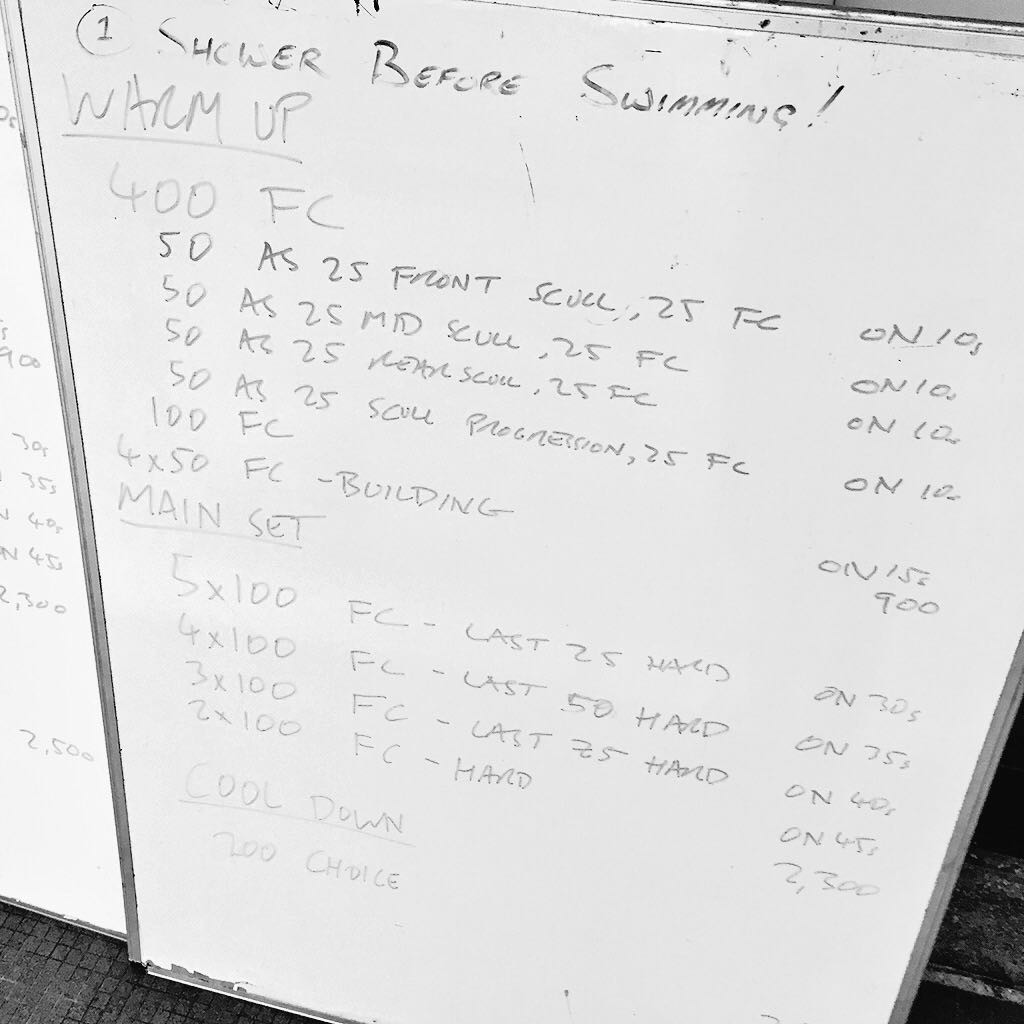 ① SHOWER BEFORE SWIMMING!
WARM UP
400 FC
50 AS 25 FRONT SCULL, 25 FC ON 10s
50 AS 25 MID SCULL, 25 FC ON 10s
50 AS 25 REAR SCULL, 25 FC ON 10s
50 AS 25 SCULL PROGRESSION, 25 FC ON 10s
100 FC
4x50 FC - BUILDING ON 15s
900
MAIN SET
5x100 FC - LAST 25 HARD ON 30s
4x100 FC - LAST 50 HARD ON 35s
3x100 FC - LAST 75 HARD ON 40s
2x100 FC - HARD ON 45s
2,300
COOL DOWN
200 CHOICE
900
30s
35s
40s
45s
2,300
2,500